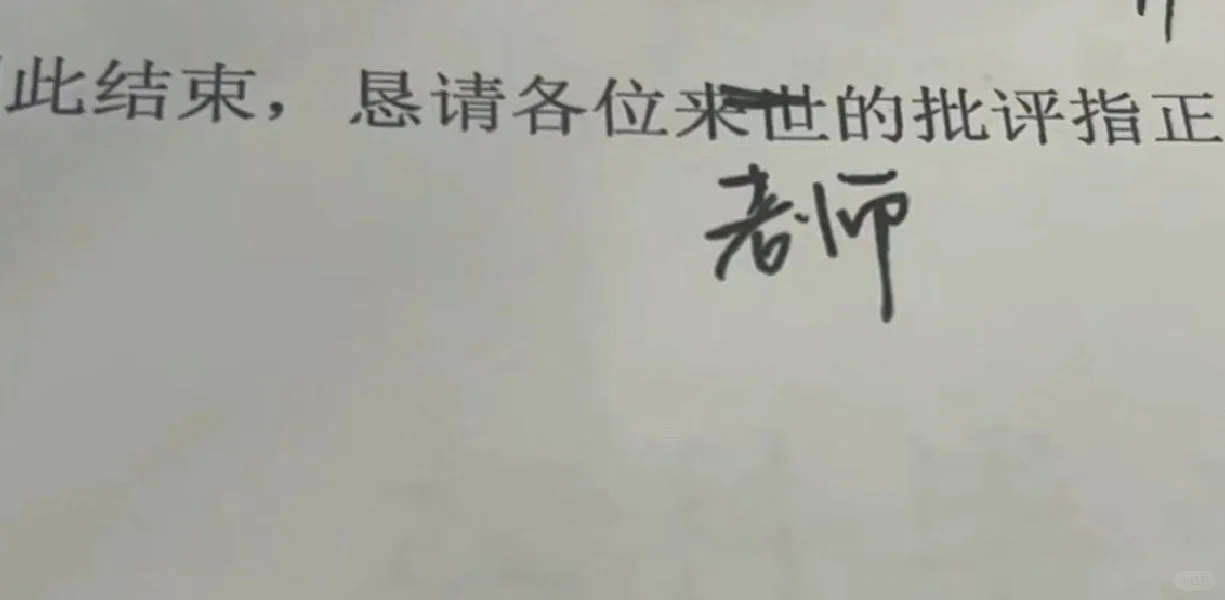 此结束，恳请各位来世的批评指正
老师